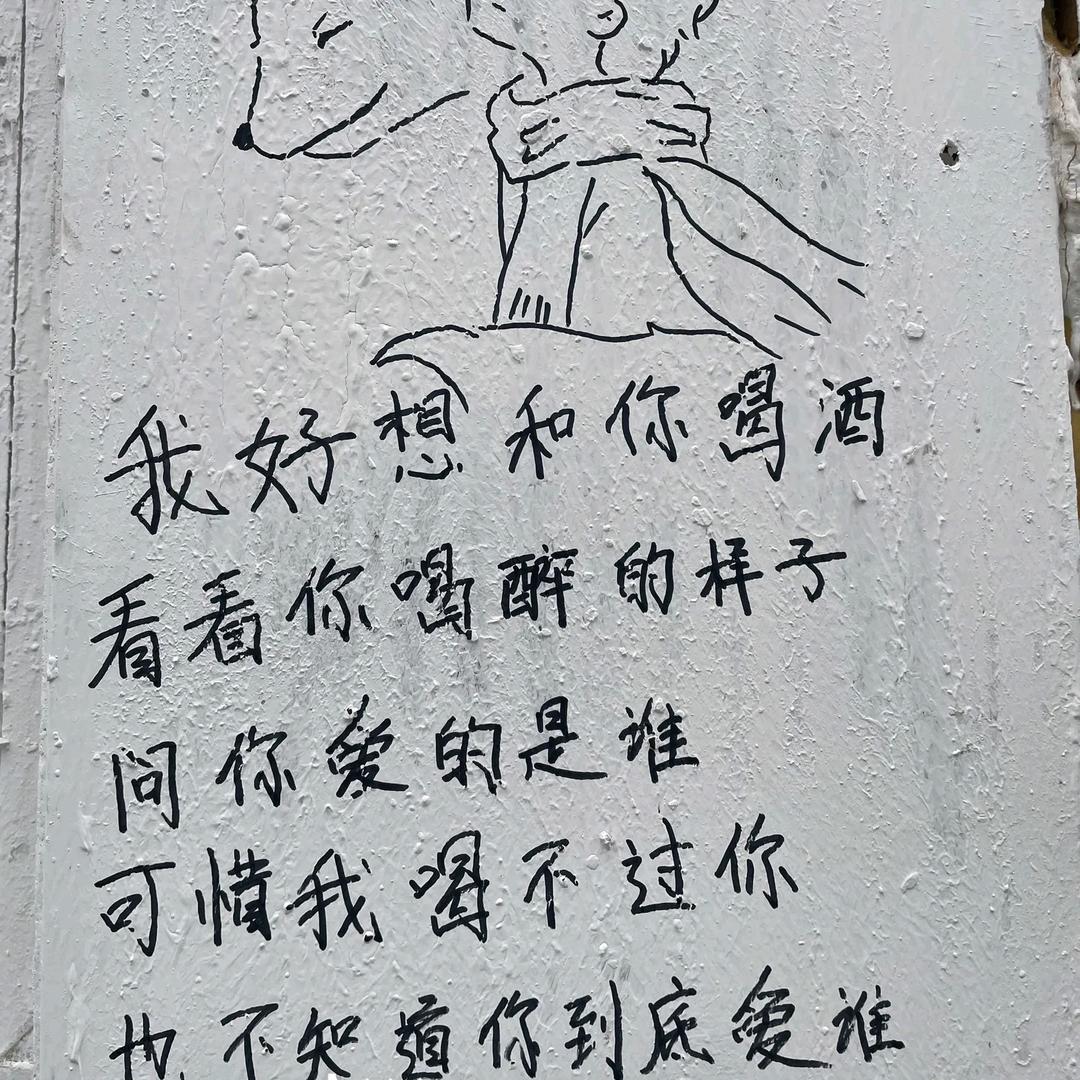 我好想和你喝酒
看看你喝醉的样子
问你爱的是谁
可惜我喝不过你
也不知道你到底爱谁